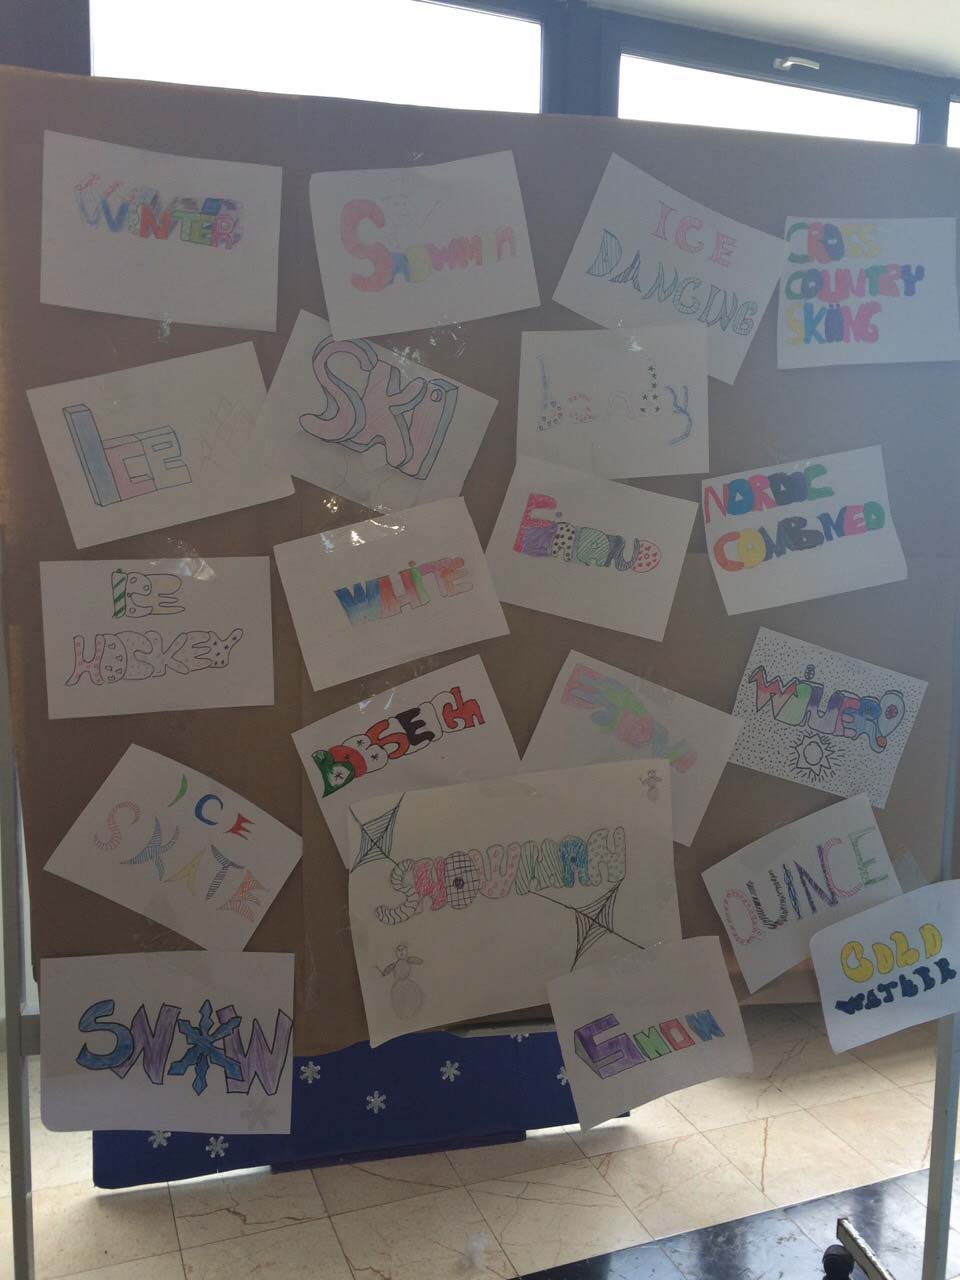 WINTER
SNOWMAN
ICE
DANCING
CROSS
COUNTRY
SKIING
ICE
SKI
NORDIC
COMBINED
ICE
HOCKEY
WHITE
BOBSEIGH
WINTER
ICE
SKATE
SNOWMAN
QUINCE
COLD
SNOW
SNOW